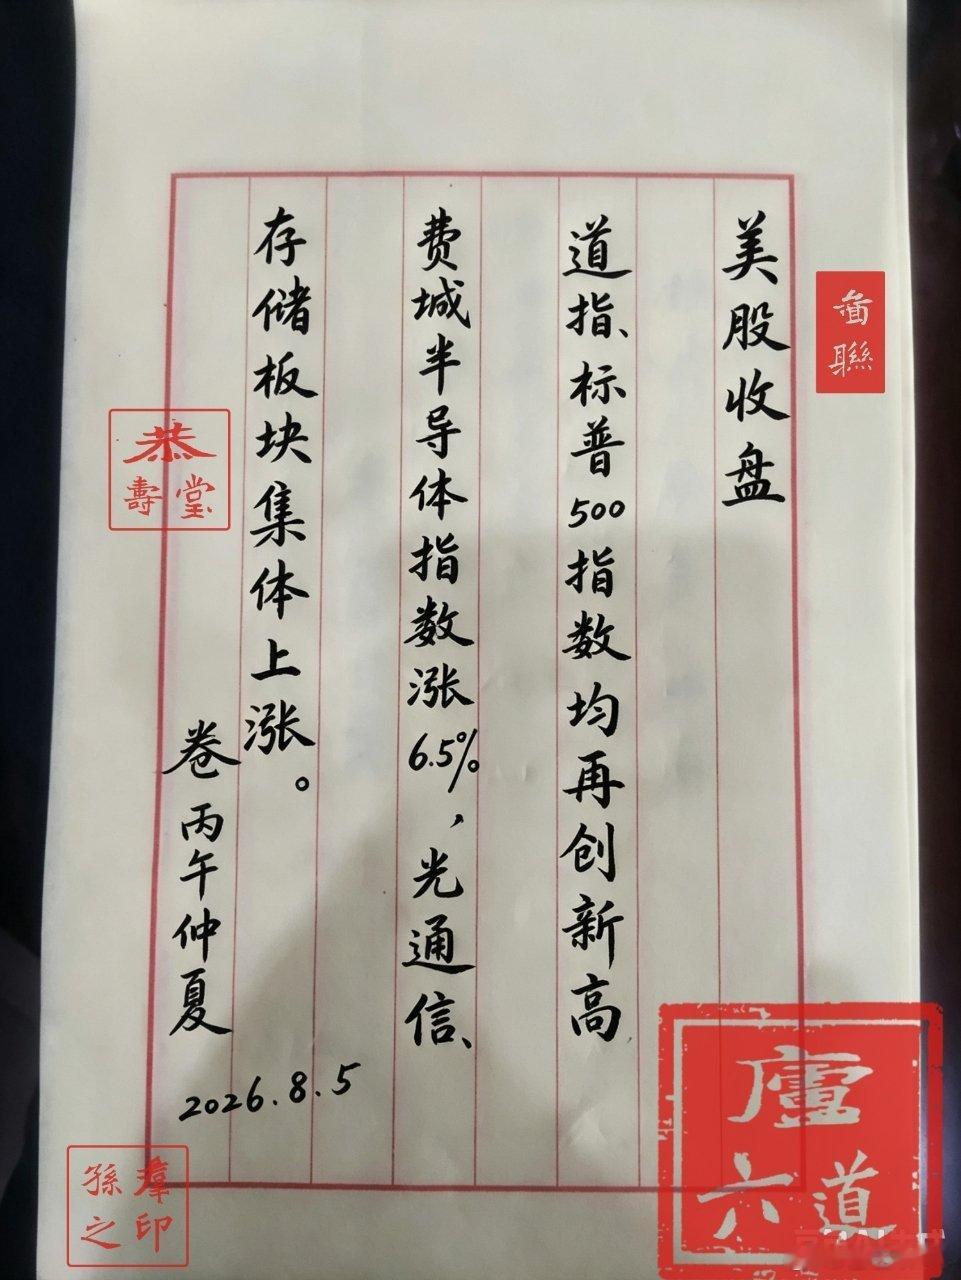 美股收盘
道指、标普500指数均再创新高
费城半导体指数涨6.5%，光通信、
存储板块集体上涨。
卷 丙午仲夏
2026.8.5
恭
壽堂
孫
之印
廬
六道